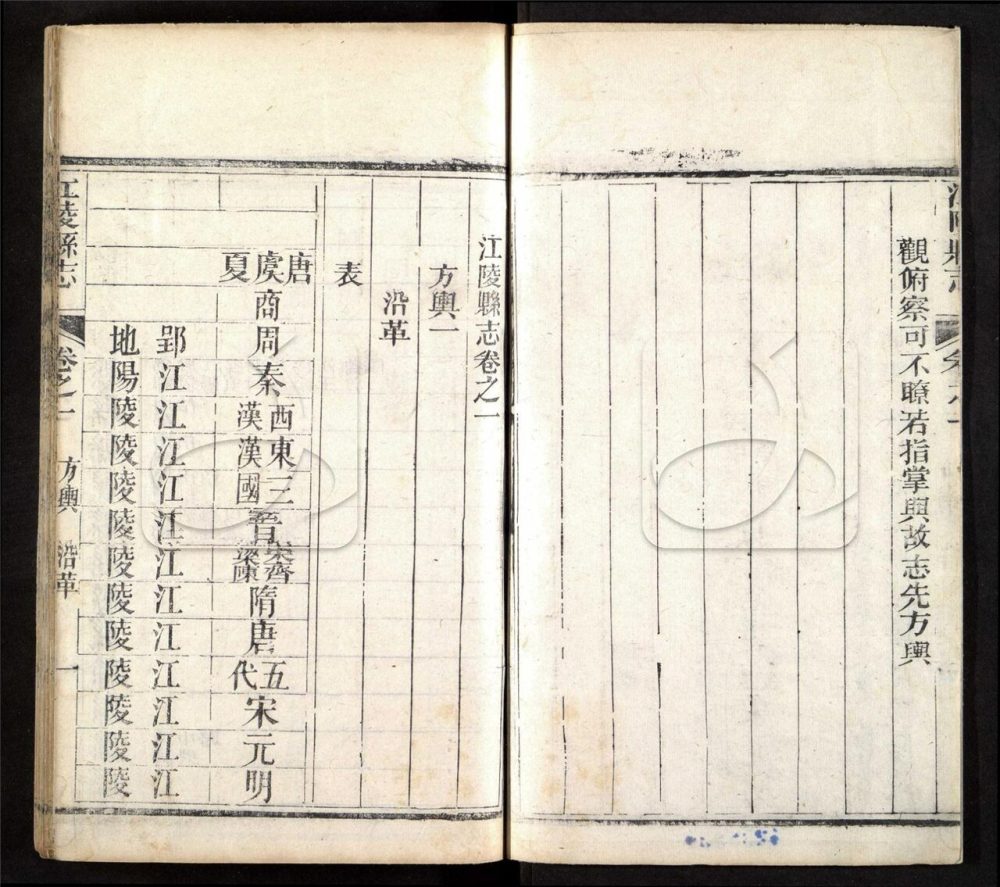 江陵縣志
觀俯察可不瞭若指掌與故志先方輿
江陵縣志卷之一
方輿一
沿革
表
唐虞夏
商
周 郢地
秦 江陽
西漢 江陵
東漢 江陵
三國 江陵
晉 江陵
宋齊梁陳 江陵
隋 江陵
唐 江陵
五代 江陵
宋 江陵
元 江陵
明 江陵
江陵縣志 卷之一 方輿 沿革 一